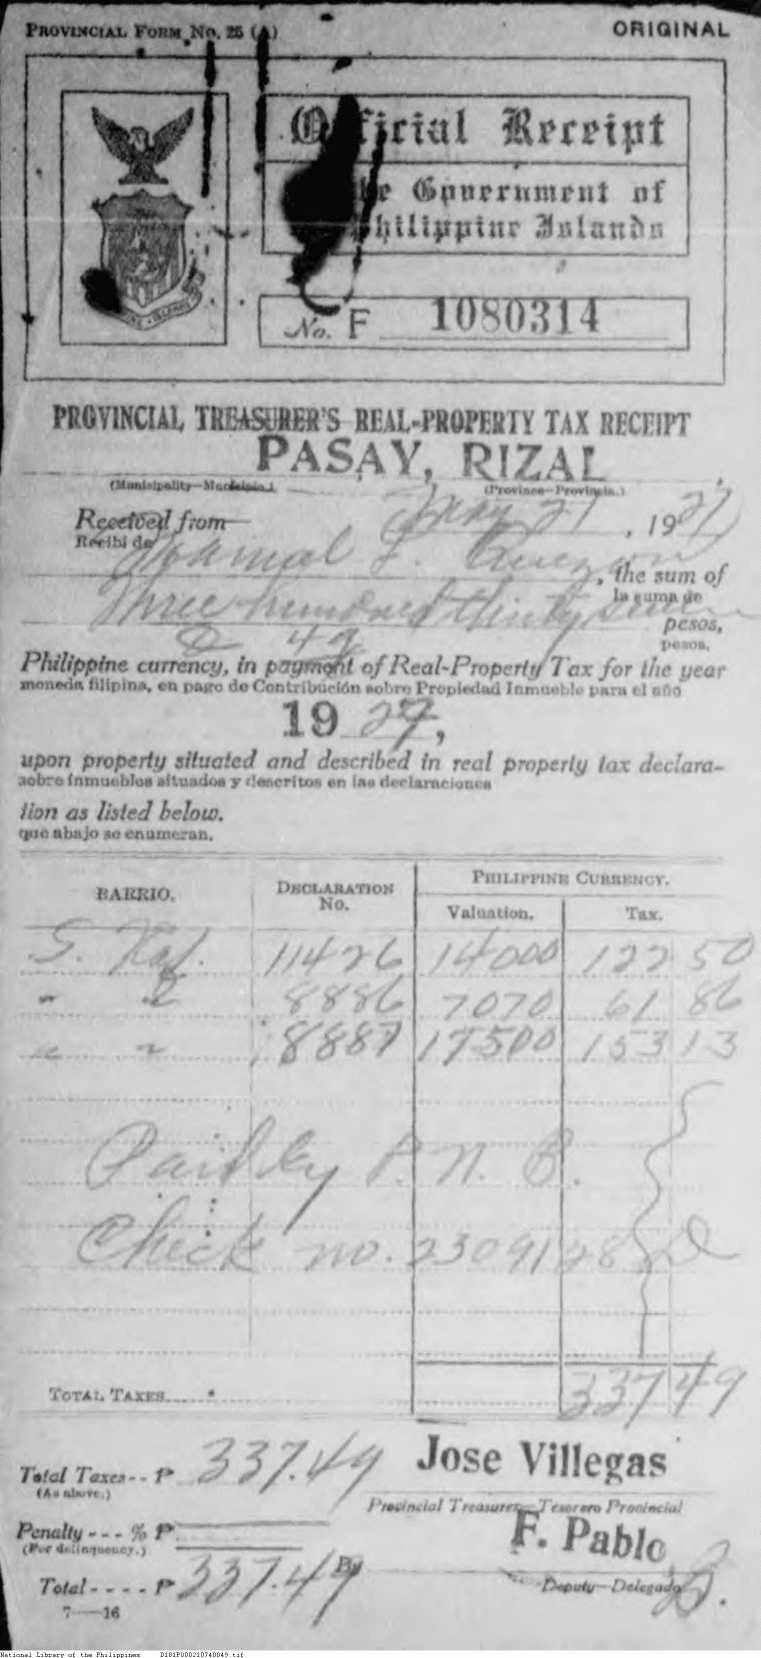 PROVINCIAL FORM No. 25 (A)
ORIGINAL
Official Receipt
Government of
Philippine Islands
No. F 1080314
PROVINCIAL TREASURER'S REAL-PROPERTY TAX RECEIPT
PASAY, RIZAL
(Municipality—Municipio.) (Province—Provincia.)
May 21, 1927
Received from
Recibí de
Manuel L. Quezon, the sum of
la suma de
Three hundred thirty seven pesos,
pesos,
& 49
Philippine currency, in payment of Real-Property Tax for the year
moneda filipina, en pago de Contribución sobre Propiedad Inmueble para el año
1927,
upon property situated and described in real property tax declara-
sobre inmuebles situados y descritos en las declaraciones
tion as listed below.
que abajo se enumeran.
BARRIO. DECLARATION No. PHILIPPINE CURRENCY.
Valuation. Tax.
S. Raf. 11426 14000 122 50
" " 8886 7070 61 86
" " 8887 17500 153 13
Paid by P. N. B.
Check no. 230912828
TOTAL TAXES 337 49
Total Taxes-- ₱ 337.49
(As above.)
Jose Villegas
Provincial Treasurer—Tesorero Provincial
Penalty --- % ₱
(For delinquency.)
F. Pablo
Total---- ₱ 337.49
By
Deputy—Delegado
7—16
National Library of the Philippines D181P000210740049.tif